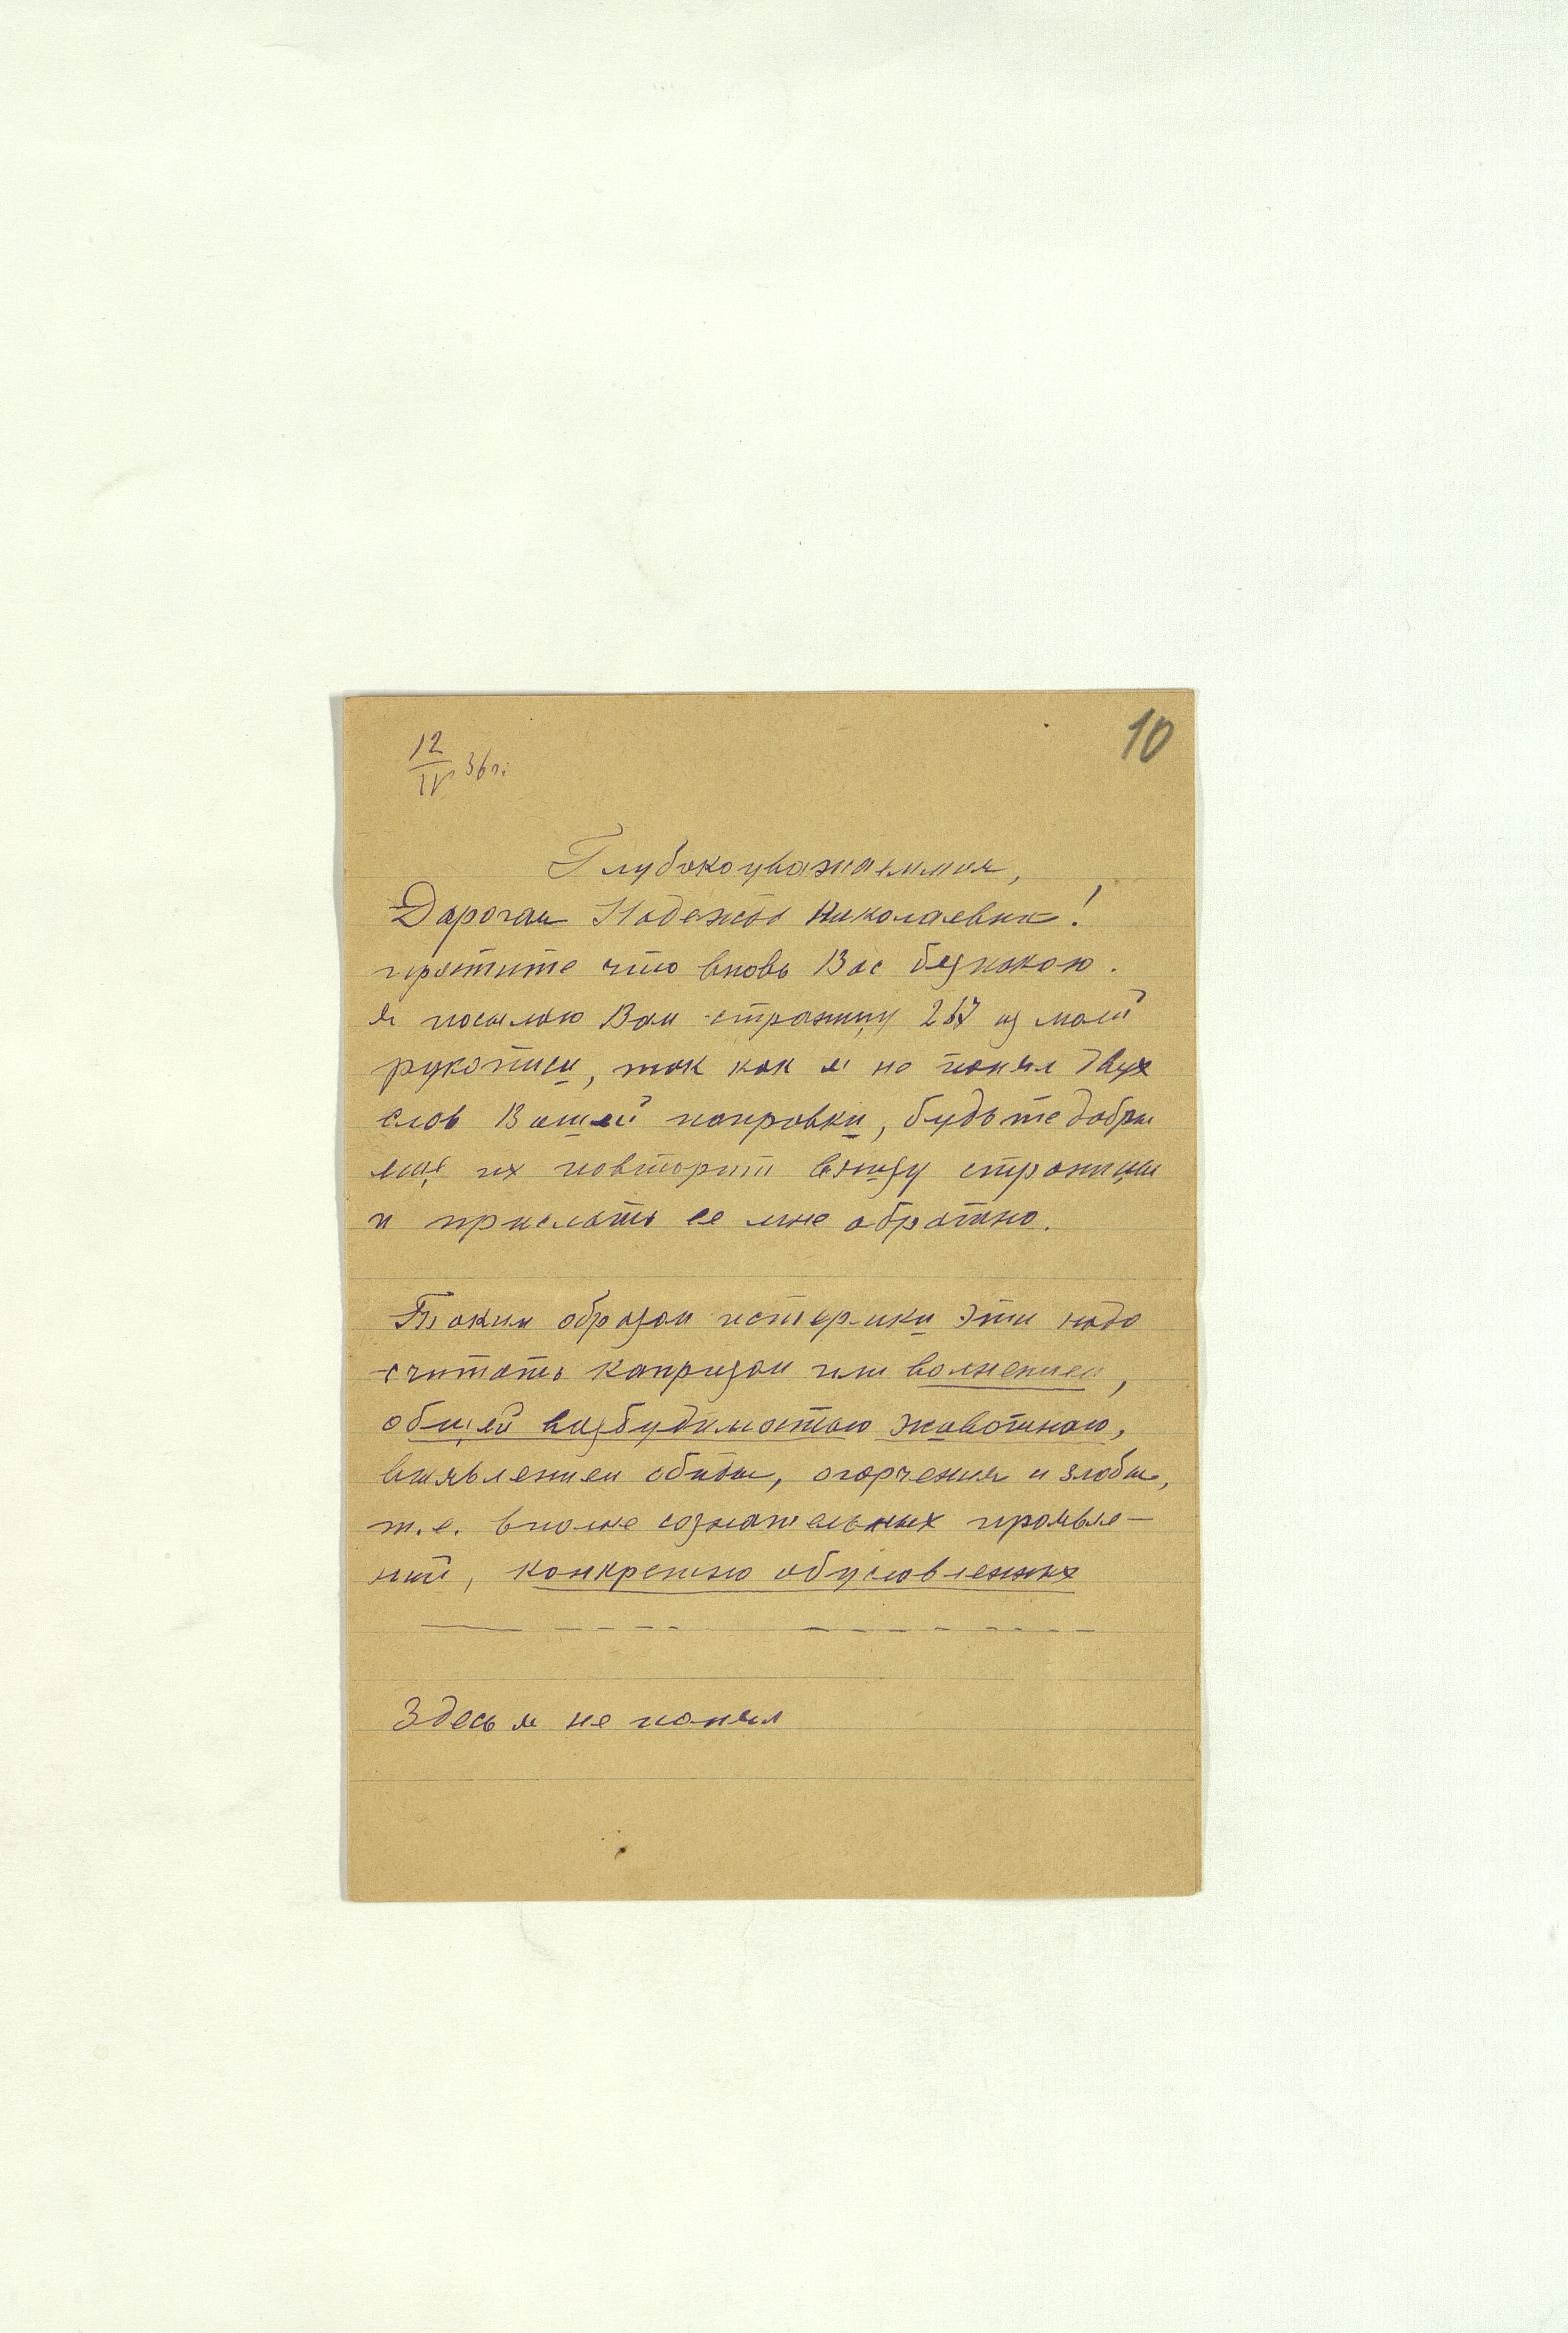 10
12/IV 36 г.
Глубокоуважаемая,
Дорогая Надежда Николаевна!
простите что вновь Вас безпокою.
я посылаю Вам страницу 267 из моей
рукописи, так как я не понял двух
слов Вашей поправки, будьте добры
еще их повторит внизу страницы
и прислать ее мне обратно.
Таким образом истерики эти надо
считать капризом или волнением,
общей возбудимостью животного,
выявлением обиды, огорчения и злобы,
т.е. вполне сознательных проявле-
ний, конкретно обусловленных
Здесь я не понял